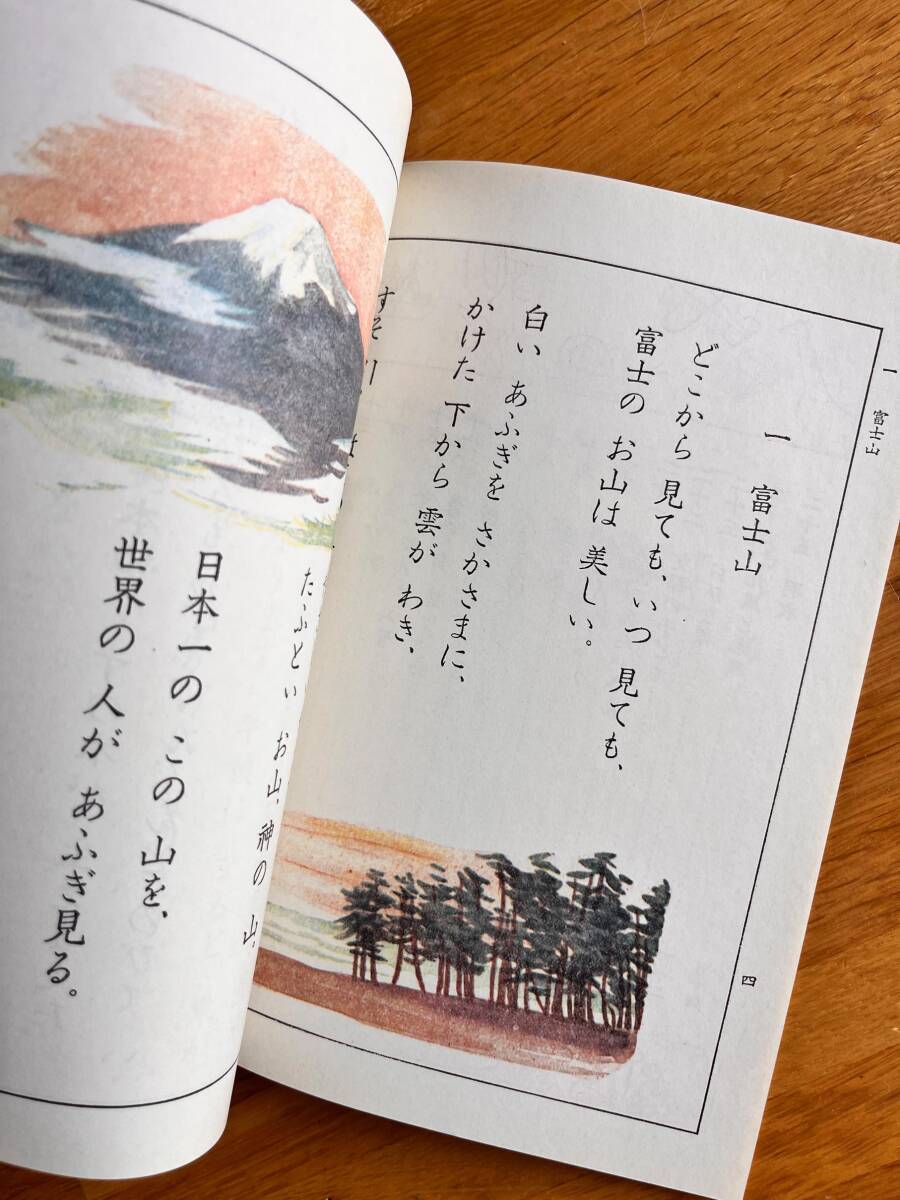 一 富士山
四
一 富士山
どこから 見ても、いつ 見ても、
富士の お山は 美しい。
白い あふぎを さかさまに、
かけた 下から 雲が わき、
すそ
たふとい お山、神の 山。
日本一の この 山を、
世界の 人が あふぎ見る。